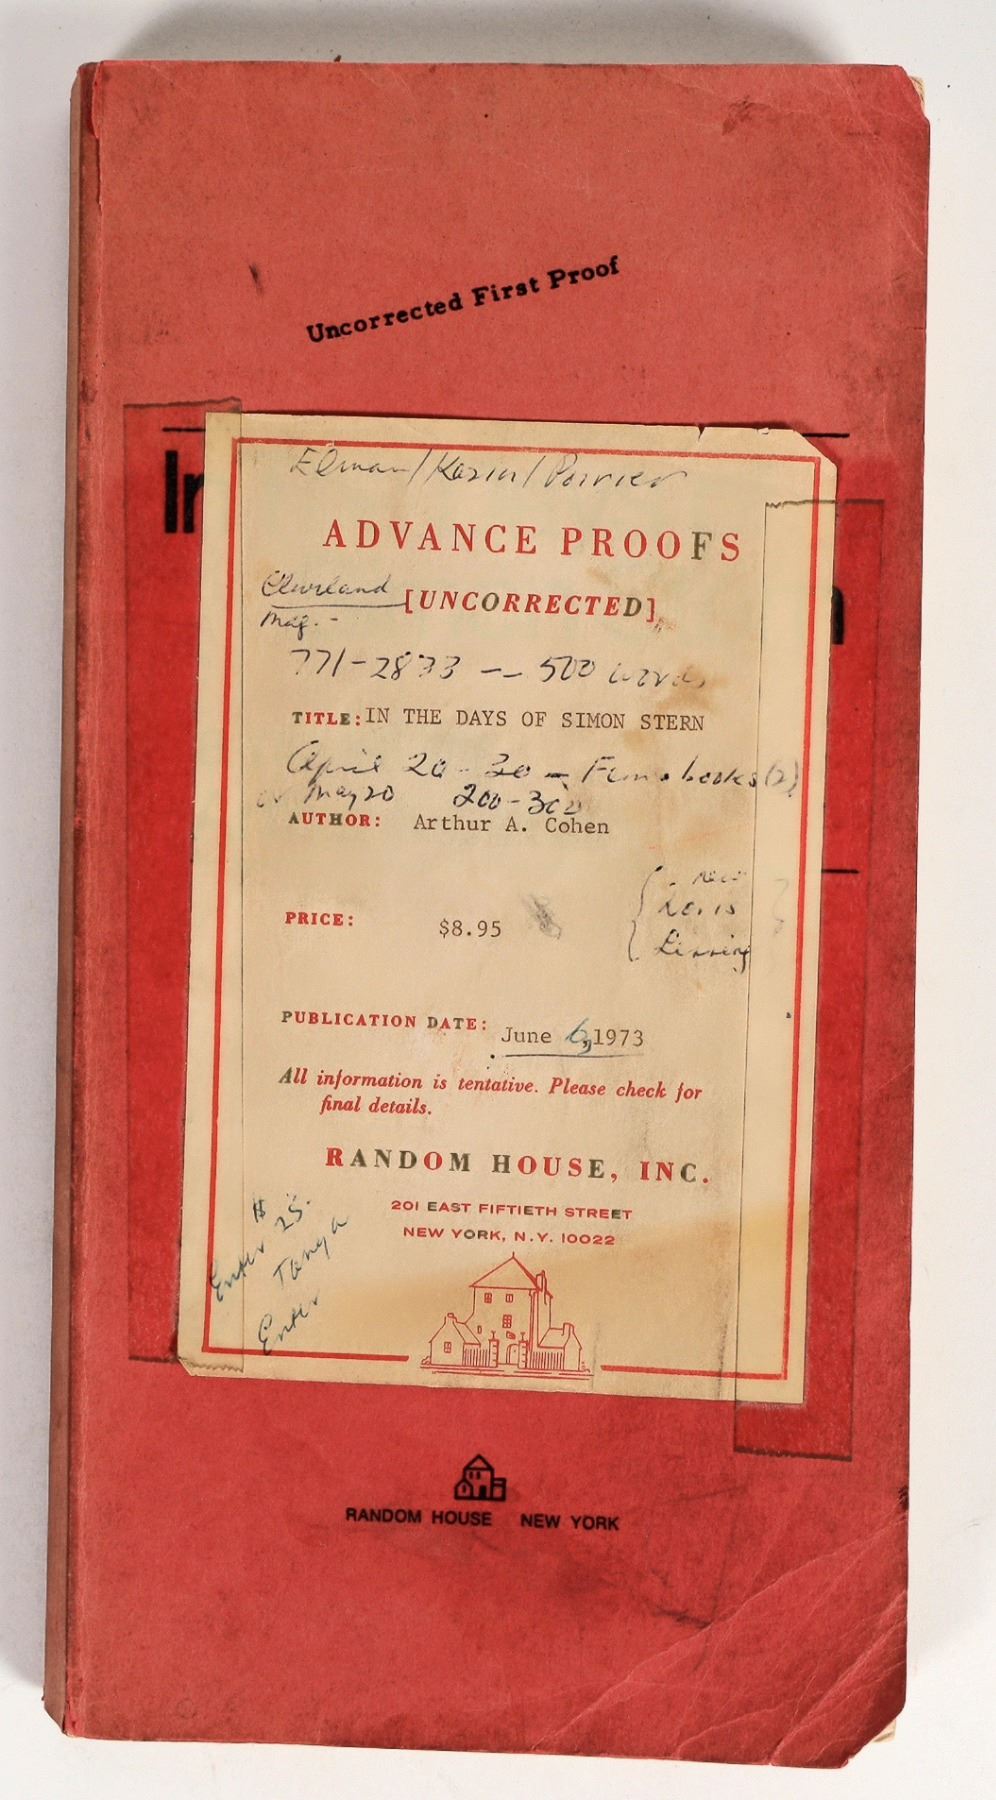 Uncorrected First Proof
In
Elman/Kazin/Poirier
ADVANCE PROOFS
Cleveland
Mag. -
[UNCORRECTED]
771-2833 -- 500 words
TITLE: IN THE DAYS OF SIMON STERN
April 20 - 30 - books (2)
or May 20 200-300
AUTHOR: Arthur A. Cohen
new
Doris
Lessing
PRICE: $8.95
PUBLICATION DATE: June 6, 1973
All information is tentative. Please check for
final details.
RANDOM HOUSE, INC.
201 EAST FIFTIETH STREET
NEW YORK, N.Y. 10022
$ 25.
Enter Tanya
Enter
RANDOM HOUSE NEW YORK